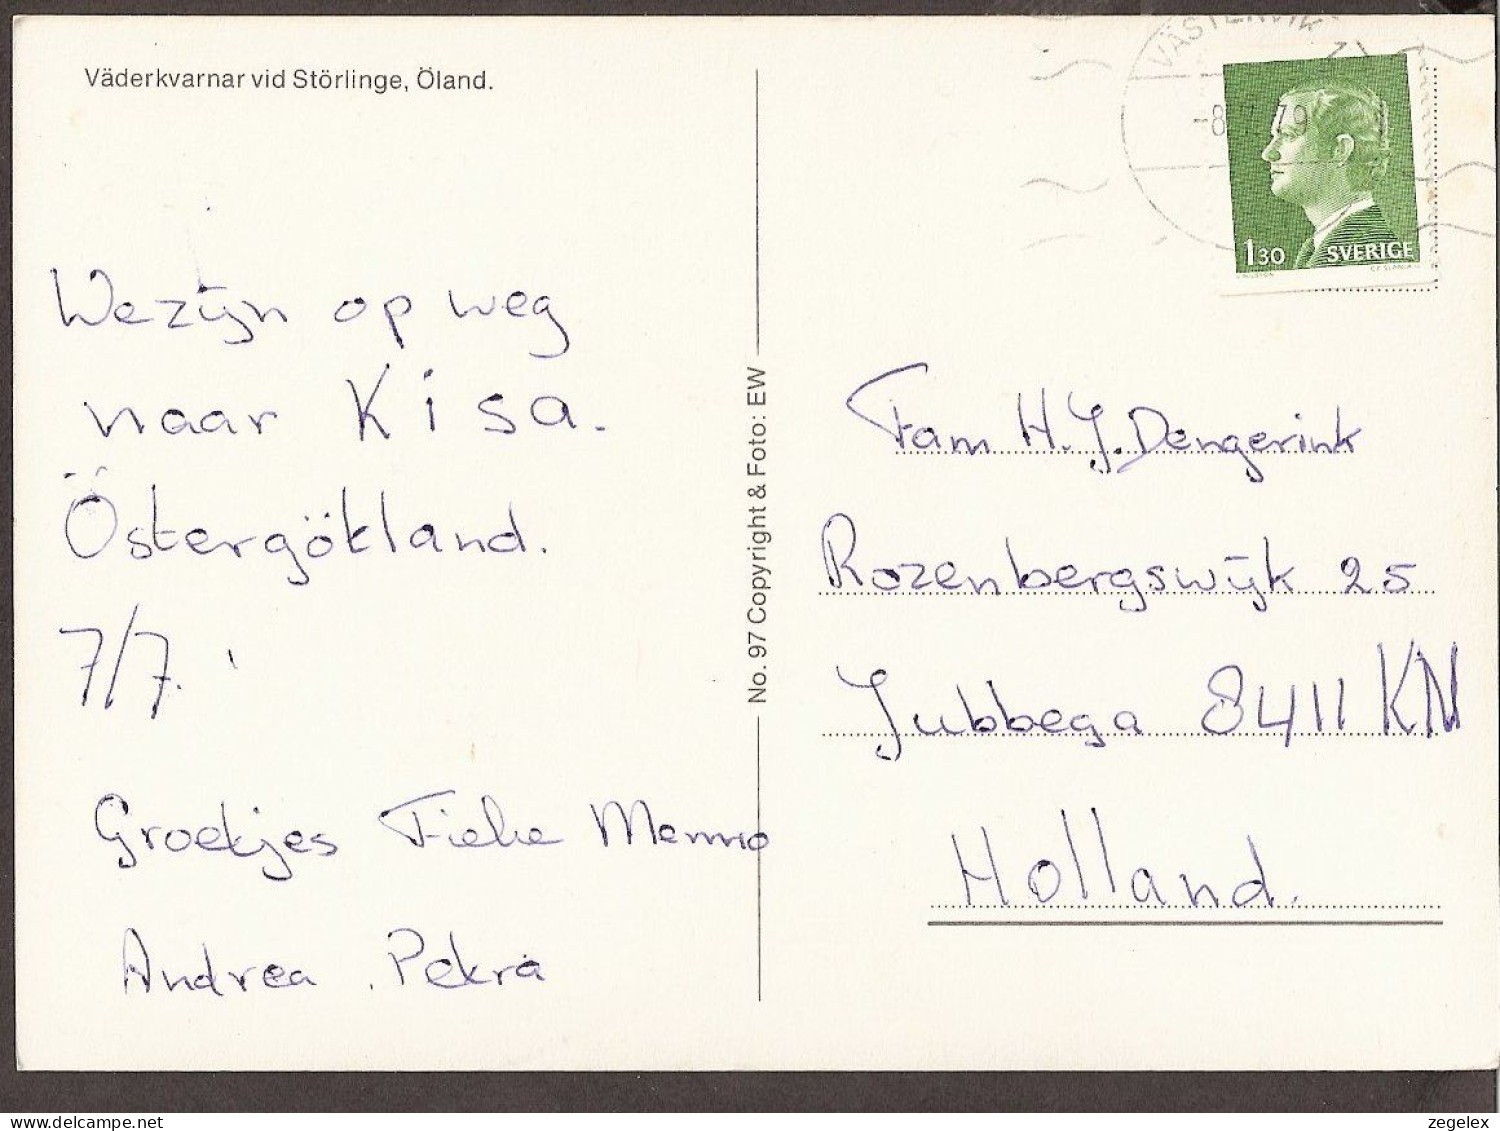 Väderkvarnar vid Störlinge, Öland.
We zijn op weg
naar Kisa.
Östergökland.
7/7.
Groetjes Fieke Menno
Andrea. Petra
No. 97 Copyright & Foto: EW
VÄSTERVIK
-8.7.79
1.30 SVERIGE
Fam H.J. Dengerink
Rozenbergswijk 25
Jubbega 8411 KN
Holland.
delcampe.net
zegelex